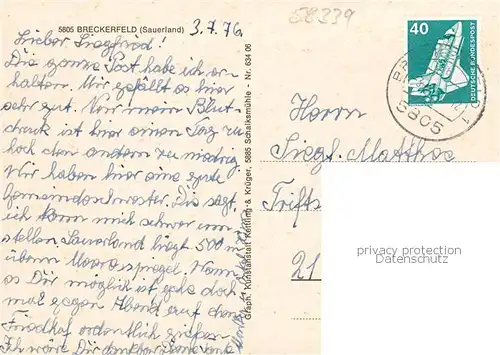 5805 BRECKERFELD (Sauerland)
3.7.76
58339
Lieber Siegfried!
Die ganze Post habe ich er-
halten. Mir gefällt es hier
sehr gut. Nur mein Blut-
druck ist hier einen Tag zu
hoch den andern zu niedrig
Wir haben hier eine gute
Gemeindeschwester. Die sagt,
ich kann mich schwer um-
stellen, Sauerland liegt 500 m
überm Meeresspiegel. Wenn
es Dir möglich ist gehe doch
mal gegen Abend auf den
Friedhof ordentlich gießen
Ich wäre Dir dankbar
Graph. Kunstanstalt Kettling & Krüger, 5885 Schalksmühle - Nr. 634 06
40
DEUTSCHE BUNDESPOST
5805
1
Herrn
Siegf. Matthos
Trifts
21
privacy protection
Datenschutz